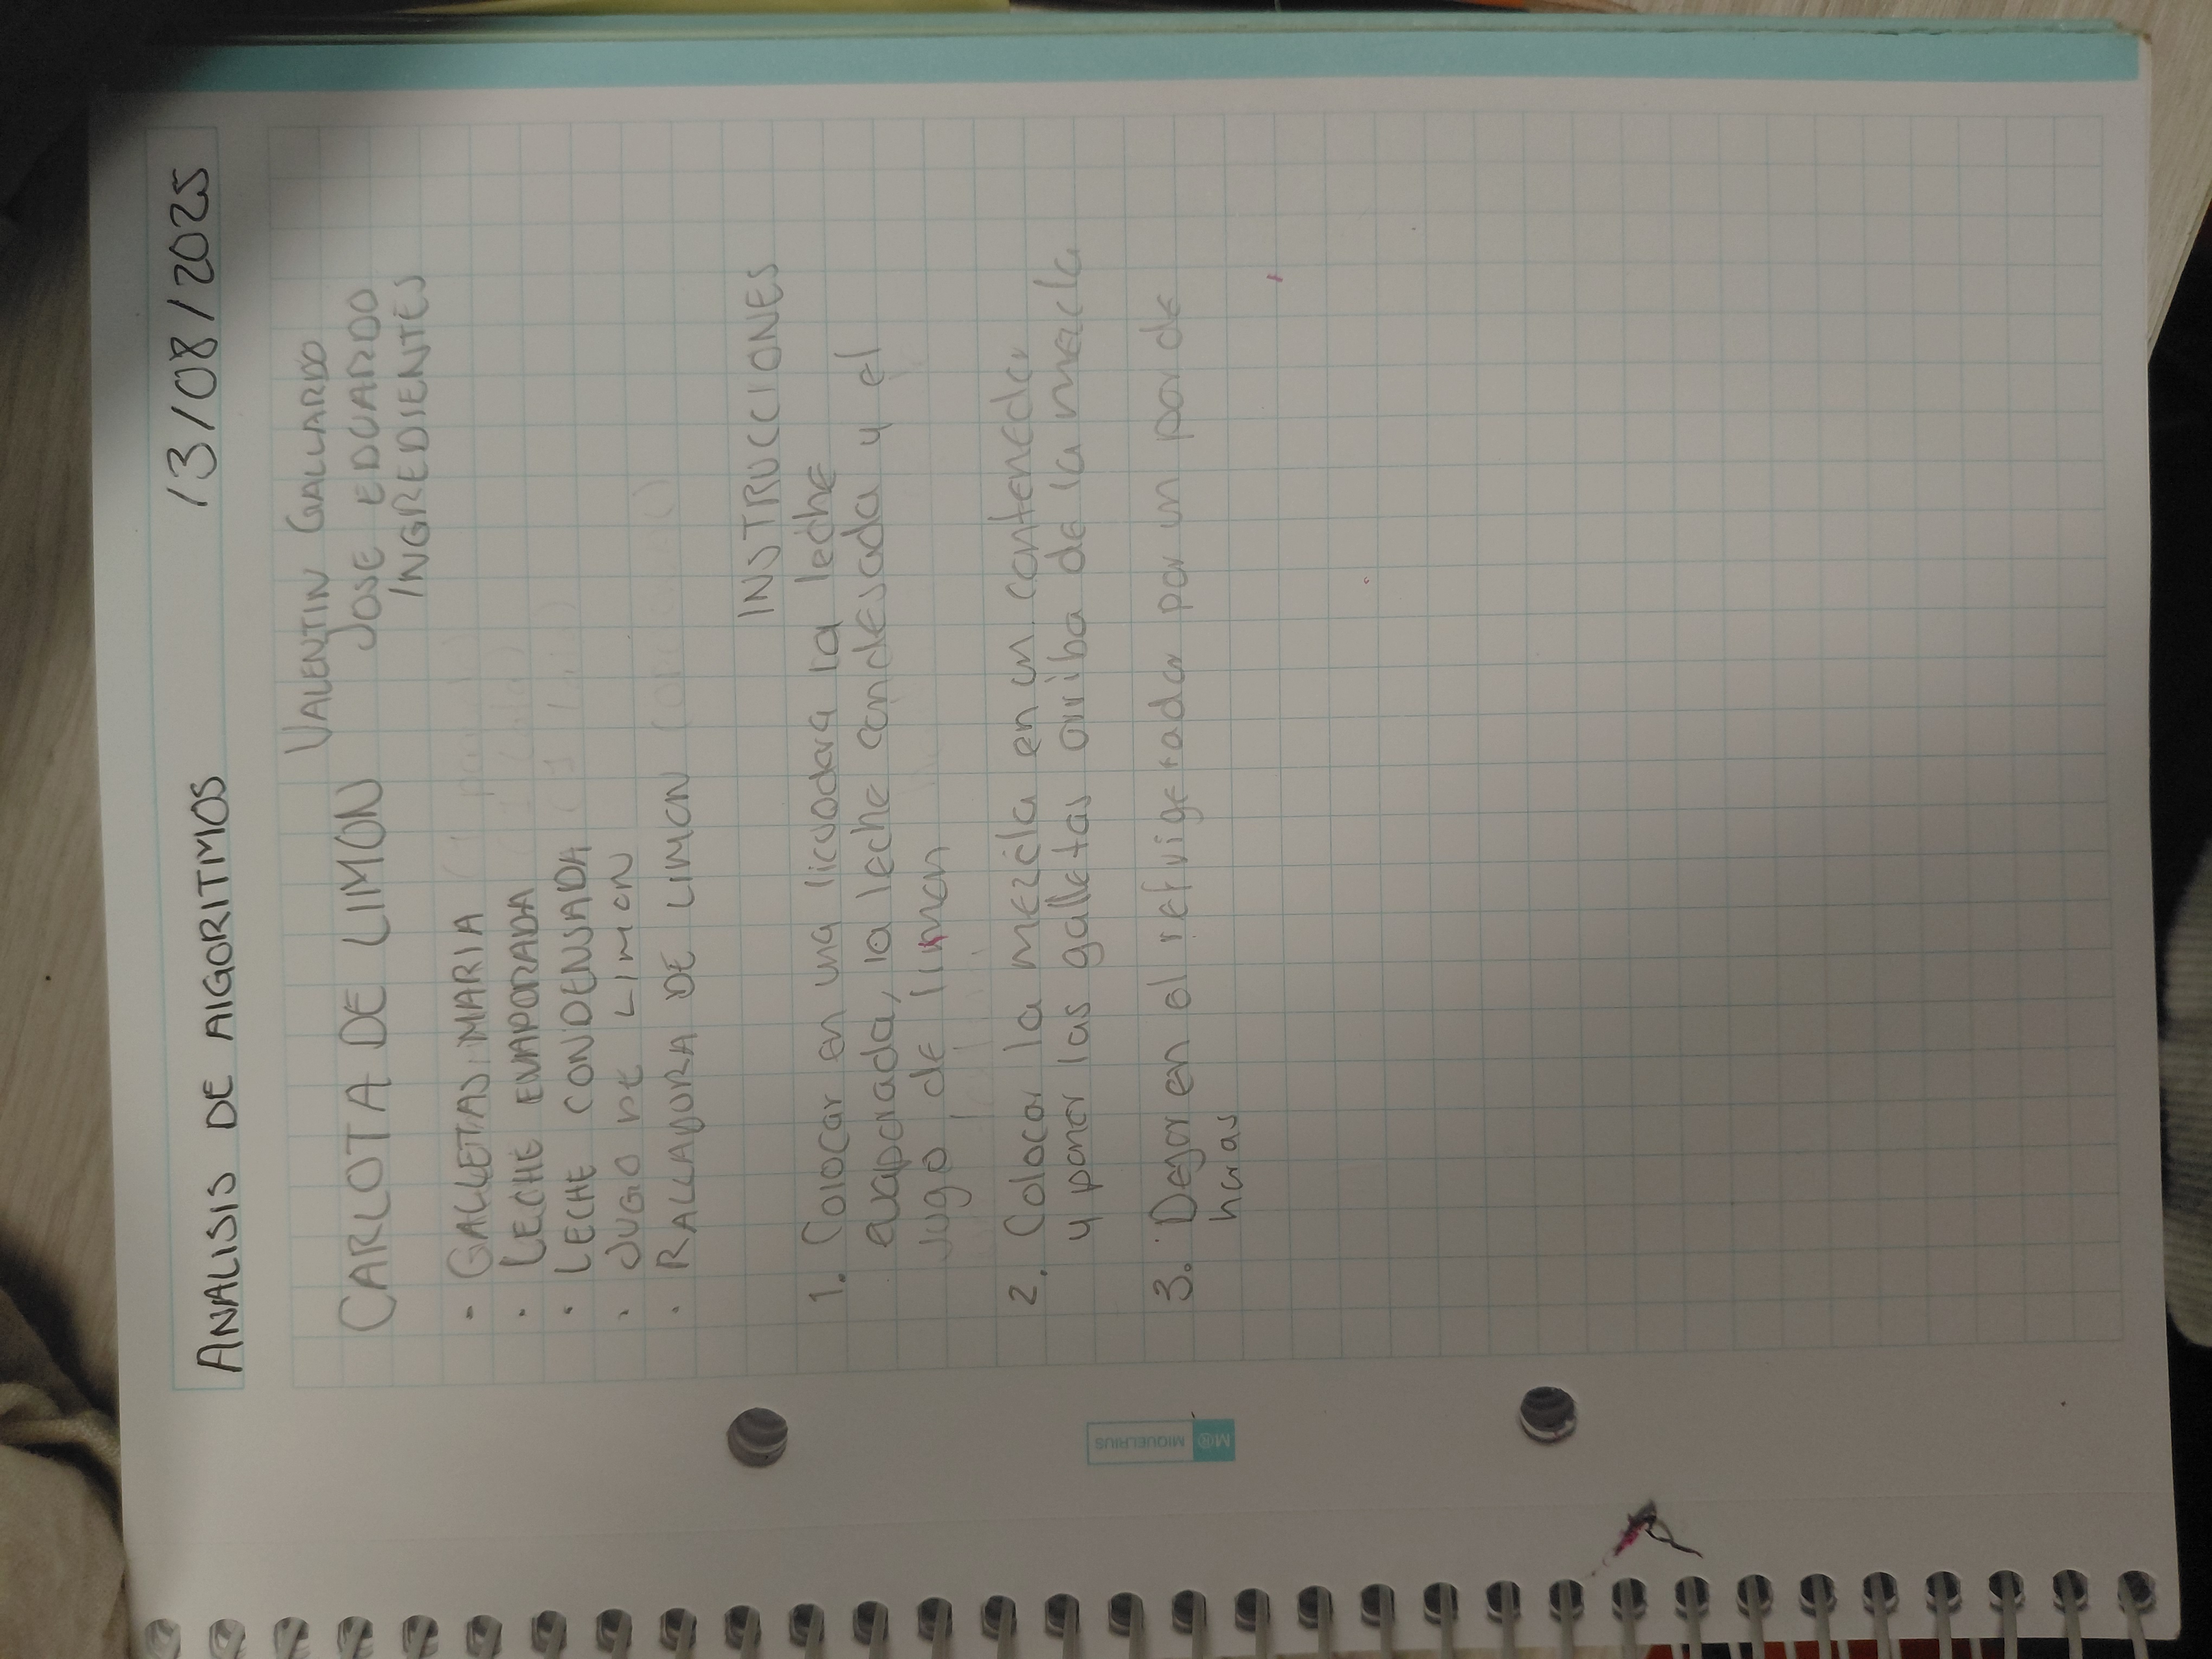 ANALISIS DE ALGORITMOS 13/08/2025
VALENTIN GALLARDO
CARLOTA DE LIMON JOSE EDUARDO
INGREDIENTES
- GALLETAS MARIA
· LECHE EVAPORADA
· LECHE CONDENSADA
· JUGO DE LIMON
· RALLADURA DE LIMON
INSTRUCCIONES
1. Colocar en una licuadora la leche
evaporada, la leche condesada y el
jugo de limon
2. Colocar la mezcla en un contenedor
y poner las galletas arriba de la mezcla
3. Dejar en el refrigerador por un par de
horas
M® MIQUELRIUS